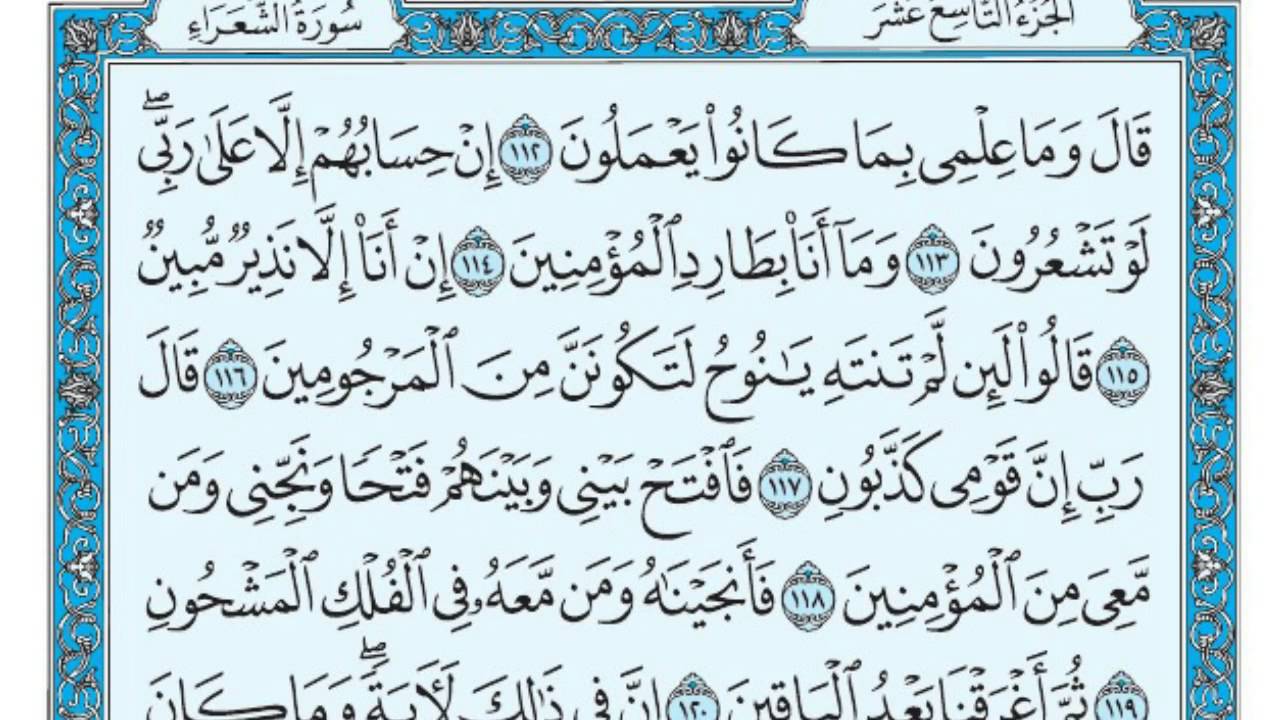 الجُزْءُ التَّاسِعَ عَشَرَ
سُورَةُ الشُّعَرَاءِ
قَالَ وَمَا عِلْمِى بِمَا كَانُوا۟ يَعْمَلُونَ ١١٢ إِنْ حِسَابُهُمْ إِلَّا عَلَىٰ رَبِّىۖ
لَوْ تَشْعُرُونَ ١١٣ وَمَآ أَنَا۠ بِطَارِدِ ٱلْمُؤْمِنِينَ ١١٤ إِنْ أَنَا۠ إِلَّا نَذِيرٌ مُّبِينٌ
١١٥ قَالُوا۟ لَئِن لَّمْ تَنتَهِ يَـٰنُوحُ لَتَكُونَنَّ مِنَ ٱلْمَرْجُومِينَ ١١٦ قَالَ
رَبِّ إِنَّ قَوْمِى كَذَّبُونِ ١١٧ فَٱفْتَحْ بَيْنِى وَبَيْنَهُمْ فَتْحًا وَنَجِّنِى وَمَن
مَّعِىَ مِنَ ٱلْمُؤْمِنِينَ ١١٨ فَأَنجَيْنَـٰهُ وَمَن مَّعَهُۥ فِى ٱلْفُلْكِ ٱلْمَشْحُونِ
١١٩ ثُمَّ أَغْرَقْنَا بَعْدُ ٱلْبَاقِينَ ١٢٠ إِنَّ فِى ذَٰلِكَ لَـَٔايَةًۖ وَمَا كَانَ